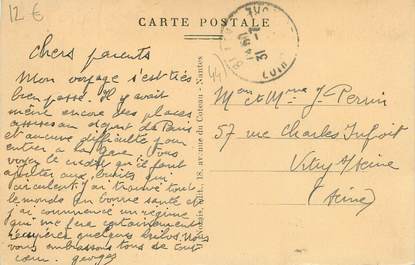 12 €
CARTE POSTALE
Chers parents
Mon voyage s'est très
bien passé. Il y avait
même encore des places
assises au départ de Paris
et aucune difficulté pour
entrer à la gare. Vous
voyez le crédit qu'il faut
ajouter aux bruits qui
circulent. J'ai trouvé tout
le monde en bonne santé et
j'ai commencé un régime
qui me fera certainement
quelques kilos. Nous
vous embrassons tous de tout
cœur. Georges
44
18, av. du Coteau - Nantes
31 - 7
Mr et Mme J. Perrin
57 rue Charles Infroit
Vitry s/ Seine
(Seine)